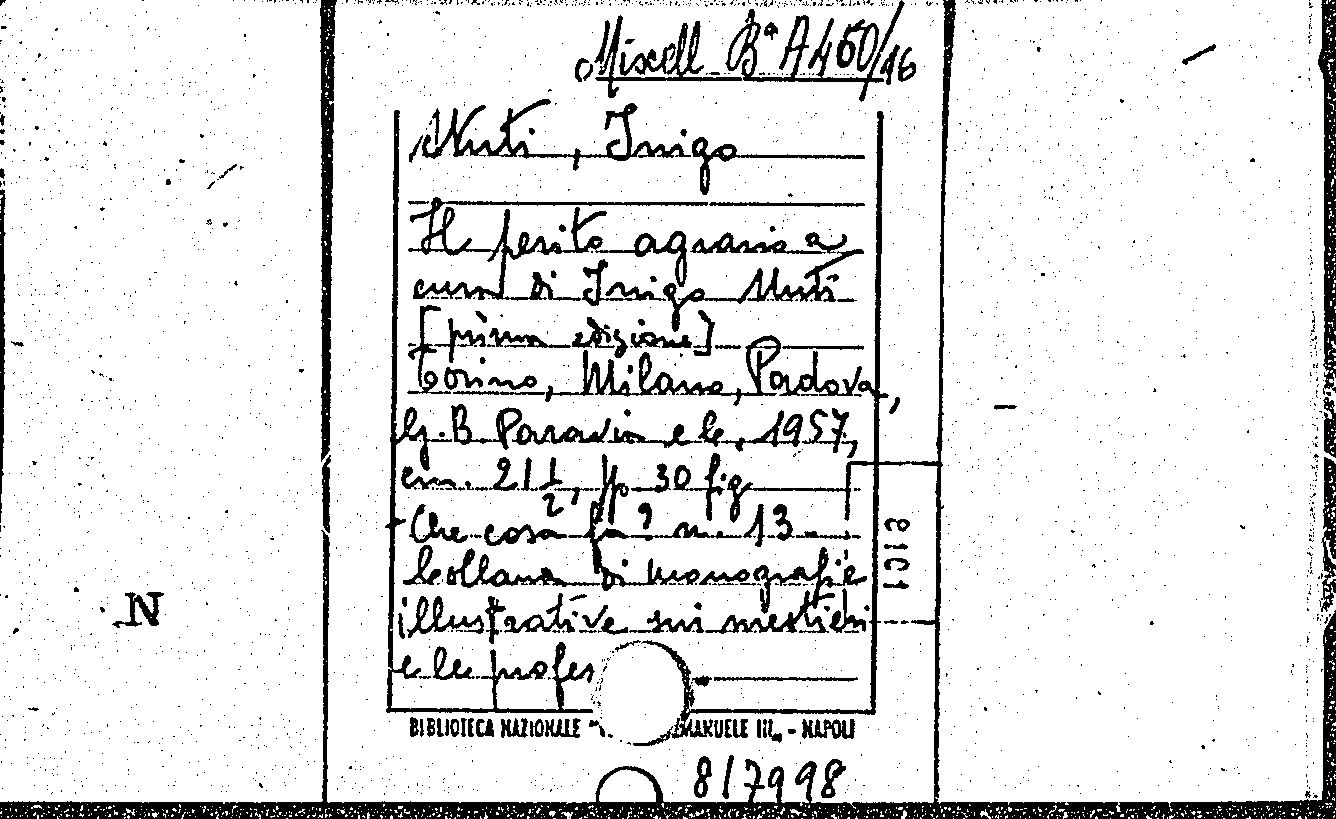 Miscell Bª A 460/16
Nuti, Inigo
Il perito agrario a
cura di Inigo Nuti
[prima edizione]
Torino, Milano, Padova,
G.B. Paravia e C., 1957,
cm. 21 1/2, pp 30 fig
Che cosa fa? n. 13 -
Collana di monografie
illustrative sui mestieri
e le profes
BIBLIOTECA NAZIONALE MANUELE III - NAPOLI
817998
N